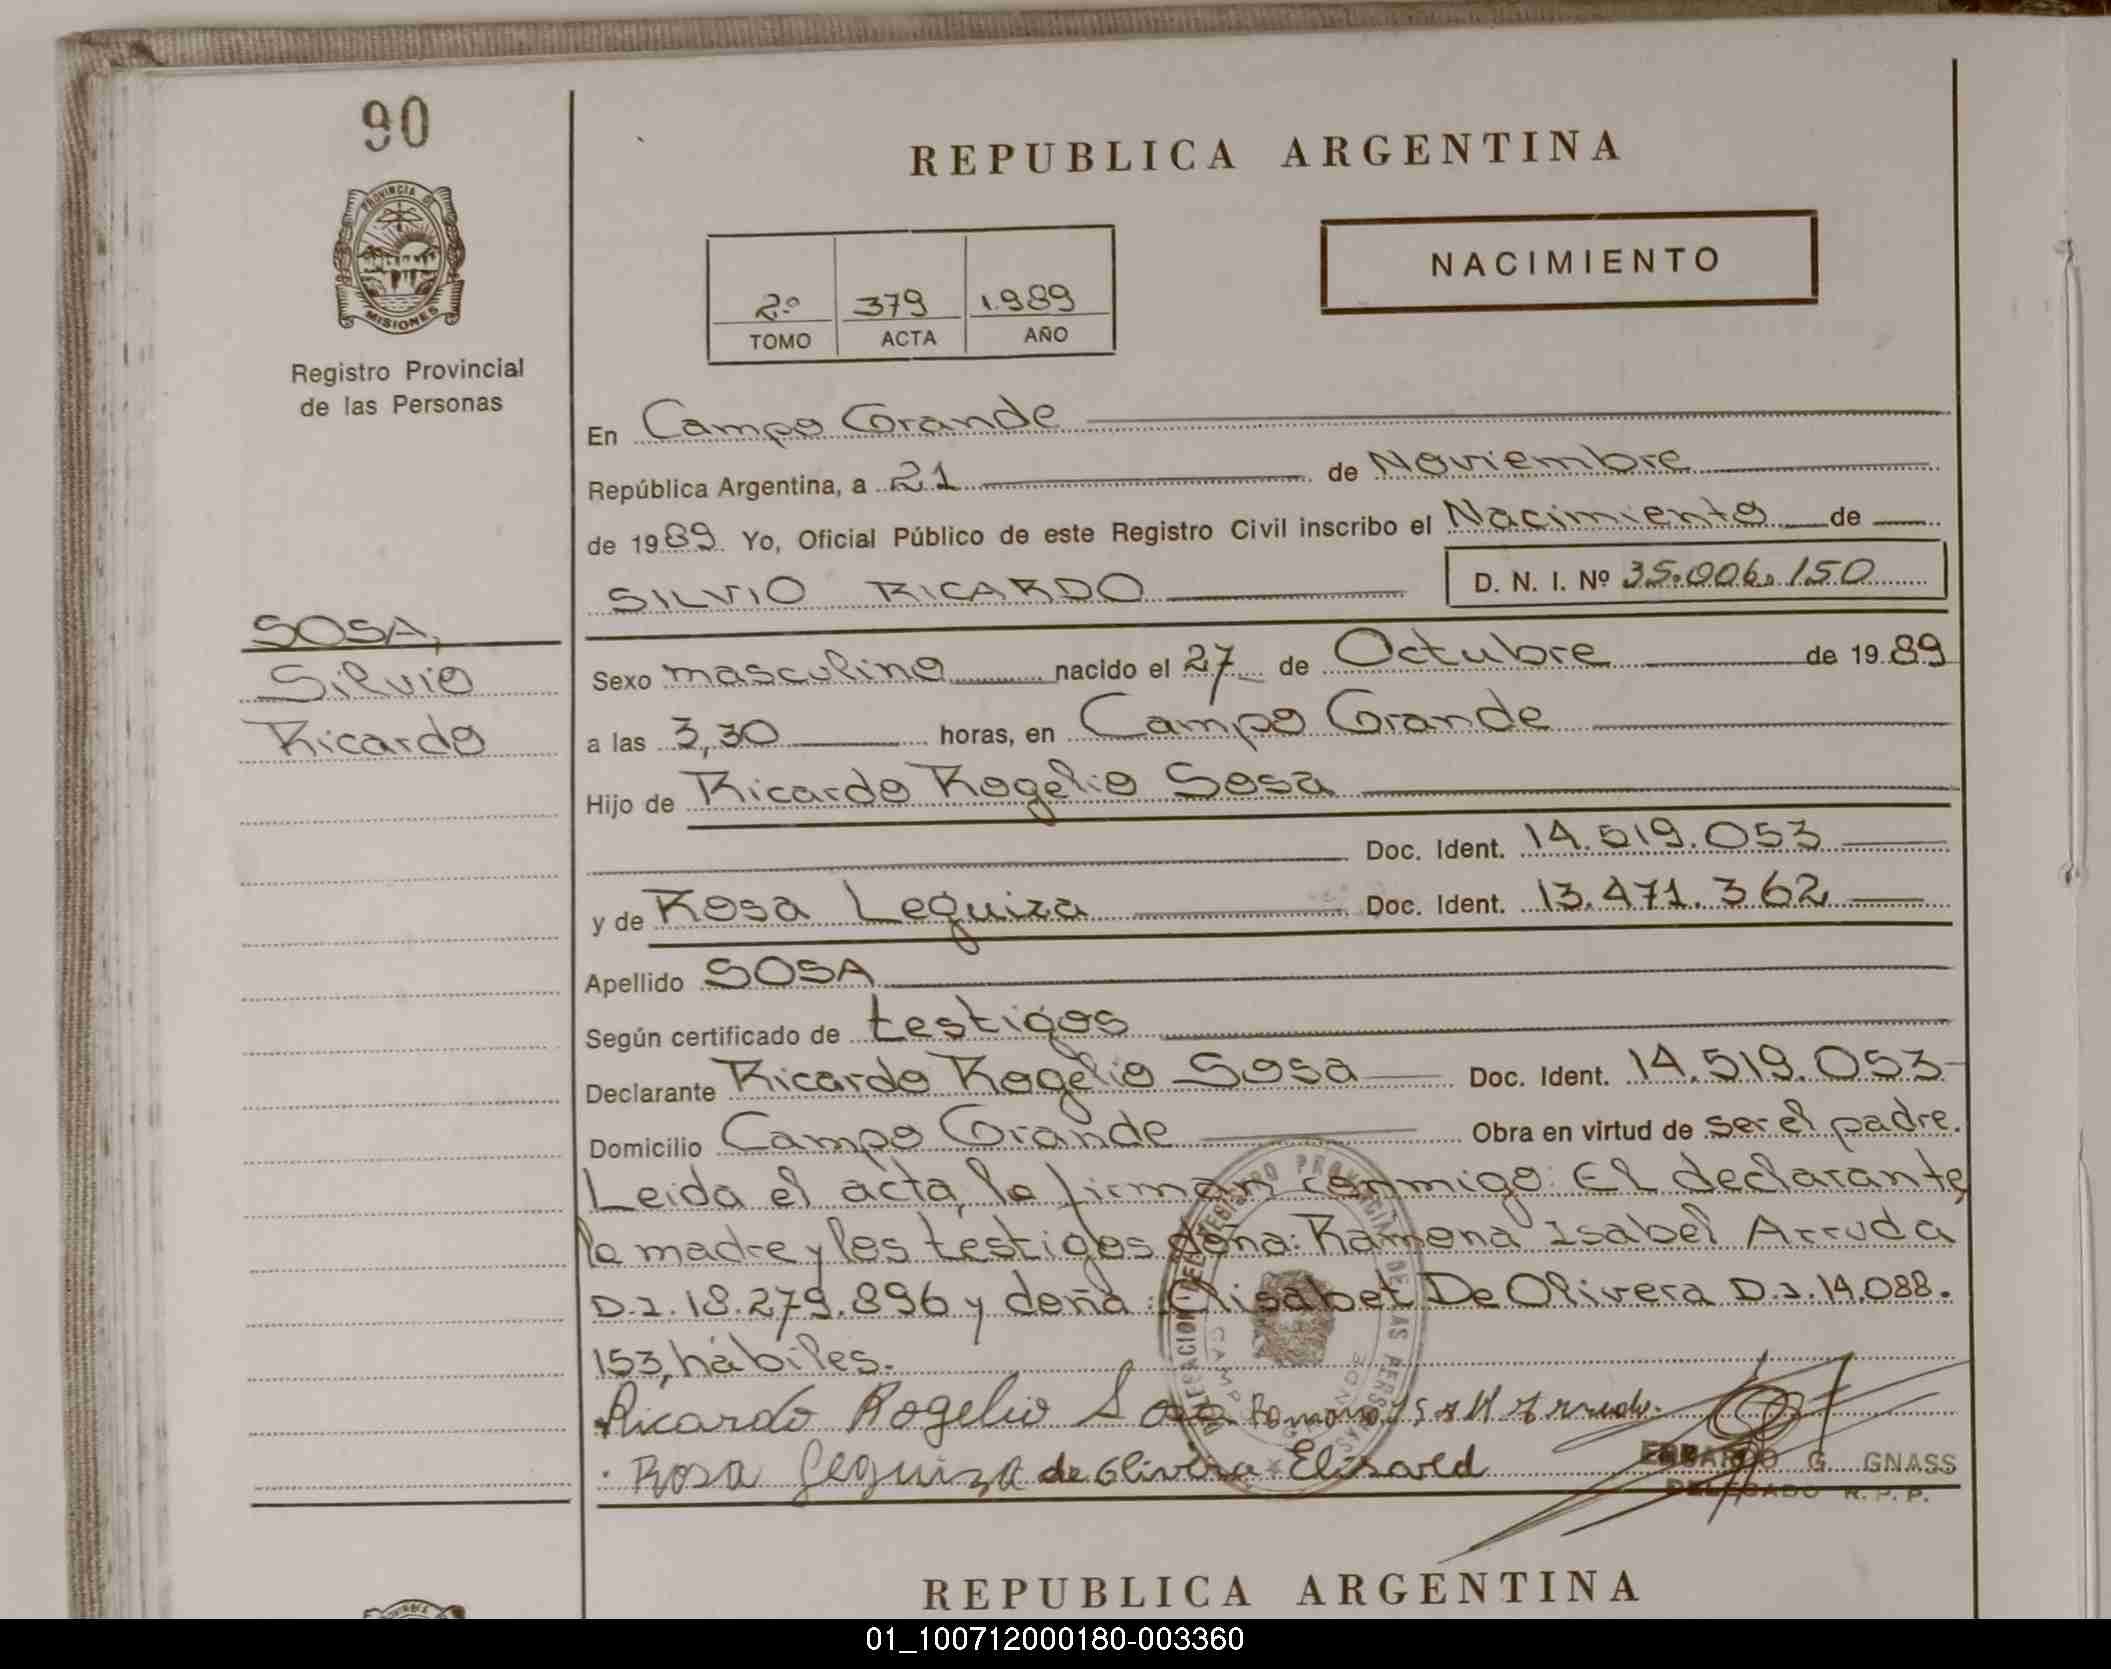 90
REPUBLICA ARGENTINA
PROVINCIA DE
MISIONES
Registro Provincial
de las Personas
NACIMIENTO
2º 379 1.989
TOMO ACTA AÑO
En Campo Grande
República Argentina, a 21 de Noviembre
de 1989 Yo, Oficial Público de este Registro Civil inscribo el Nacimiento de
SILVIO RICARDO D. N. I. Nº 35.006.150
SOSA,
Silvio
Ricardo
Sexo masculino nacido el 27 de Octubre de 1989
a las 3,30 horas, en Campo Grande
Hijo de Ricardo Rogelio Sosa
Doc. Ident. 14.519.053
y de Rosa Leguiza Doc. Ident. 13.471.362
Apellido SOSA
Según certificado de testigos
Declarante Ricardo Rogelio Sosa Doc. Ident. 14.519.053
Domicilio Campo Grande Obra en virtud de ser el padre.
Leida el acta, la firman conmigo: El declarante,
la madre y los testigos doña: Ramona Isabel Arruda
D.I. 18.279.896 y doña: Elisabet De Olivera D.I. 14.088.
153, hábiles.
Ricardo Rogelio Sosa Ramona
Rosa Leguiza de Olivera Elisabed
G. GNASS
DELEGADO R. P. P.
REPUBLICA ARGENTINA
01_100712000180-003360